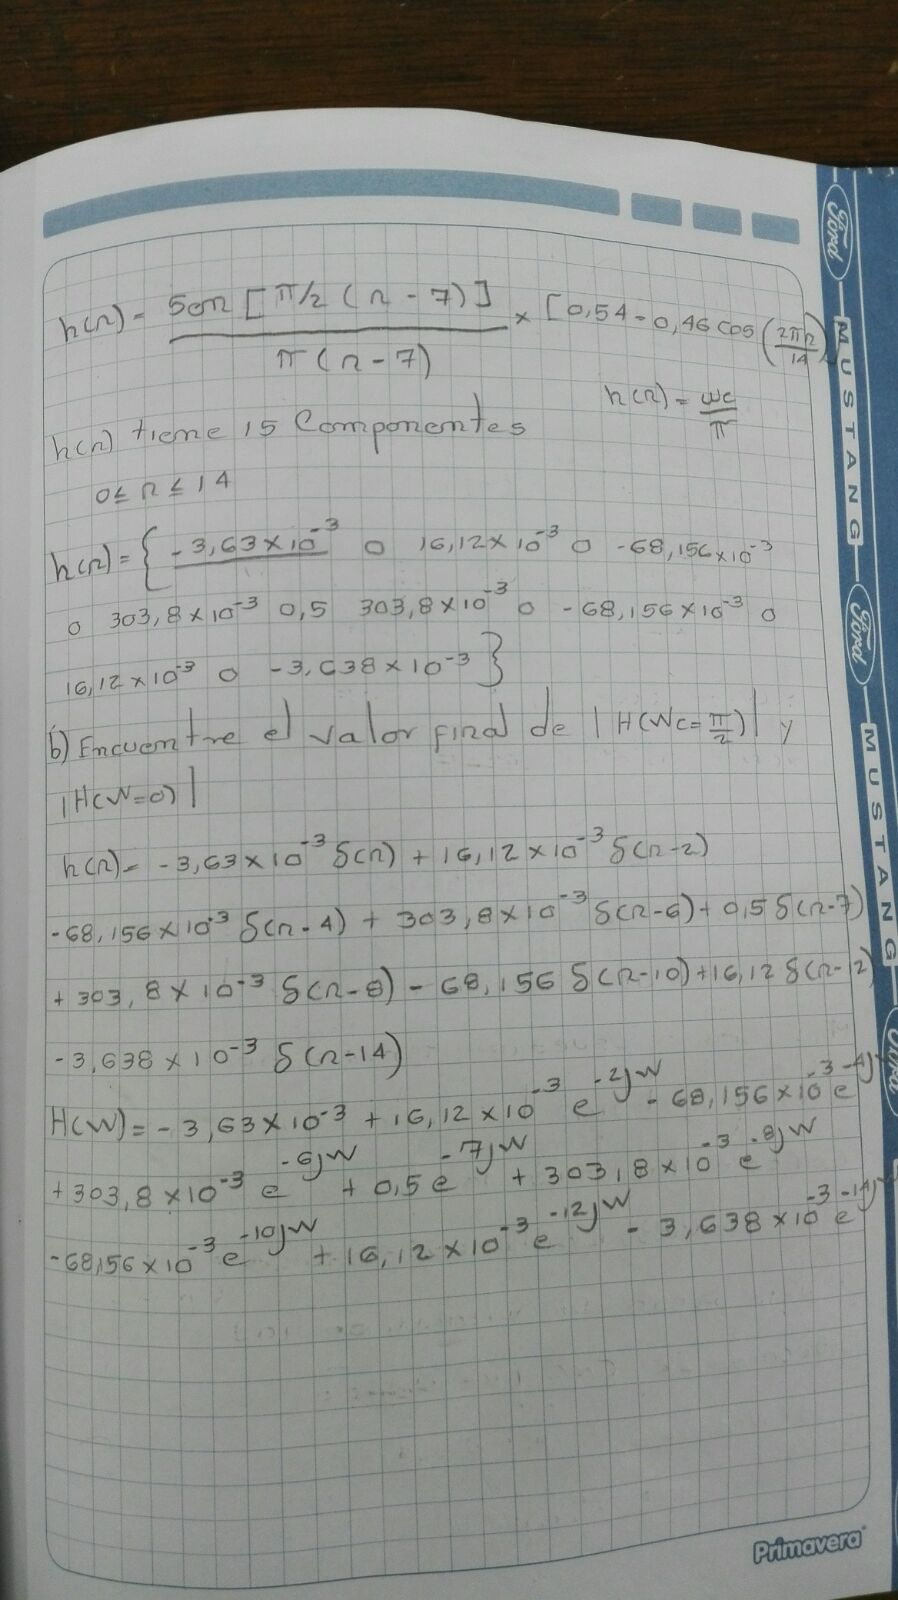 h(n) = Sen [π/2 (n - 7)] / π (n - 7) × [0,54 - 0,46 cos (2πn/14)]
h(n) = wc/π
h(n) tiene 15 Componentes
0 ≤ n ≤ 14
h(n) = { -3,63×10⁻³ 0 16,12×10⁻³ 0 -68,156×10⁻³
0 303,8×10⁻³ 0,5 303,8×10⁻³ 0 -68,156×10⁻³ 0
16,12×10⁻³ 0 -3,638×10⁻³ }
b) Encuentre el valor final de |H(Wc=π/2)| y
|H(W=0)|
h(n) = -3,63×10⁻³ δ(n) + 16,12×10⁻³ δ(n-2)
-68,156×10⁻³ δ(n-4) + 303,8×10⁻³ δ(n-6) + 0,5 δ(n-7)
+ 303,8×10⁻³ δ(n-8) - 68,156 δ(n-10) + 16,12 δ(n-12)
-3,638×10⁻³ δ(n-14)
H(W) = -3,63×10⁻³ + 16,12×10⁻³ e^-2jW - 68,156×10⁻³ e^-4j
+ 303,8×10⁻³ e^-6jW + 0,5 e^-7jW + 303,8×10⁻³ e^-8jW
-68,156×10⁻³ e^-10jW + 16,12×10⁻³ e^-12jW - 3,638×10⁻³ e^-14j
Ford
MUSTANG
Ford
MUSTANG
Ford
Primavera